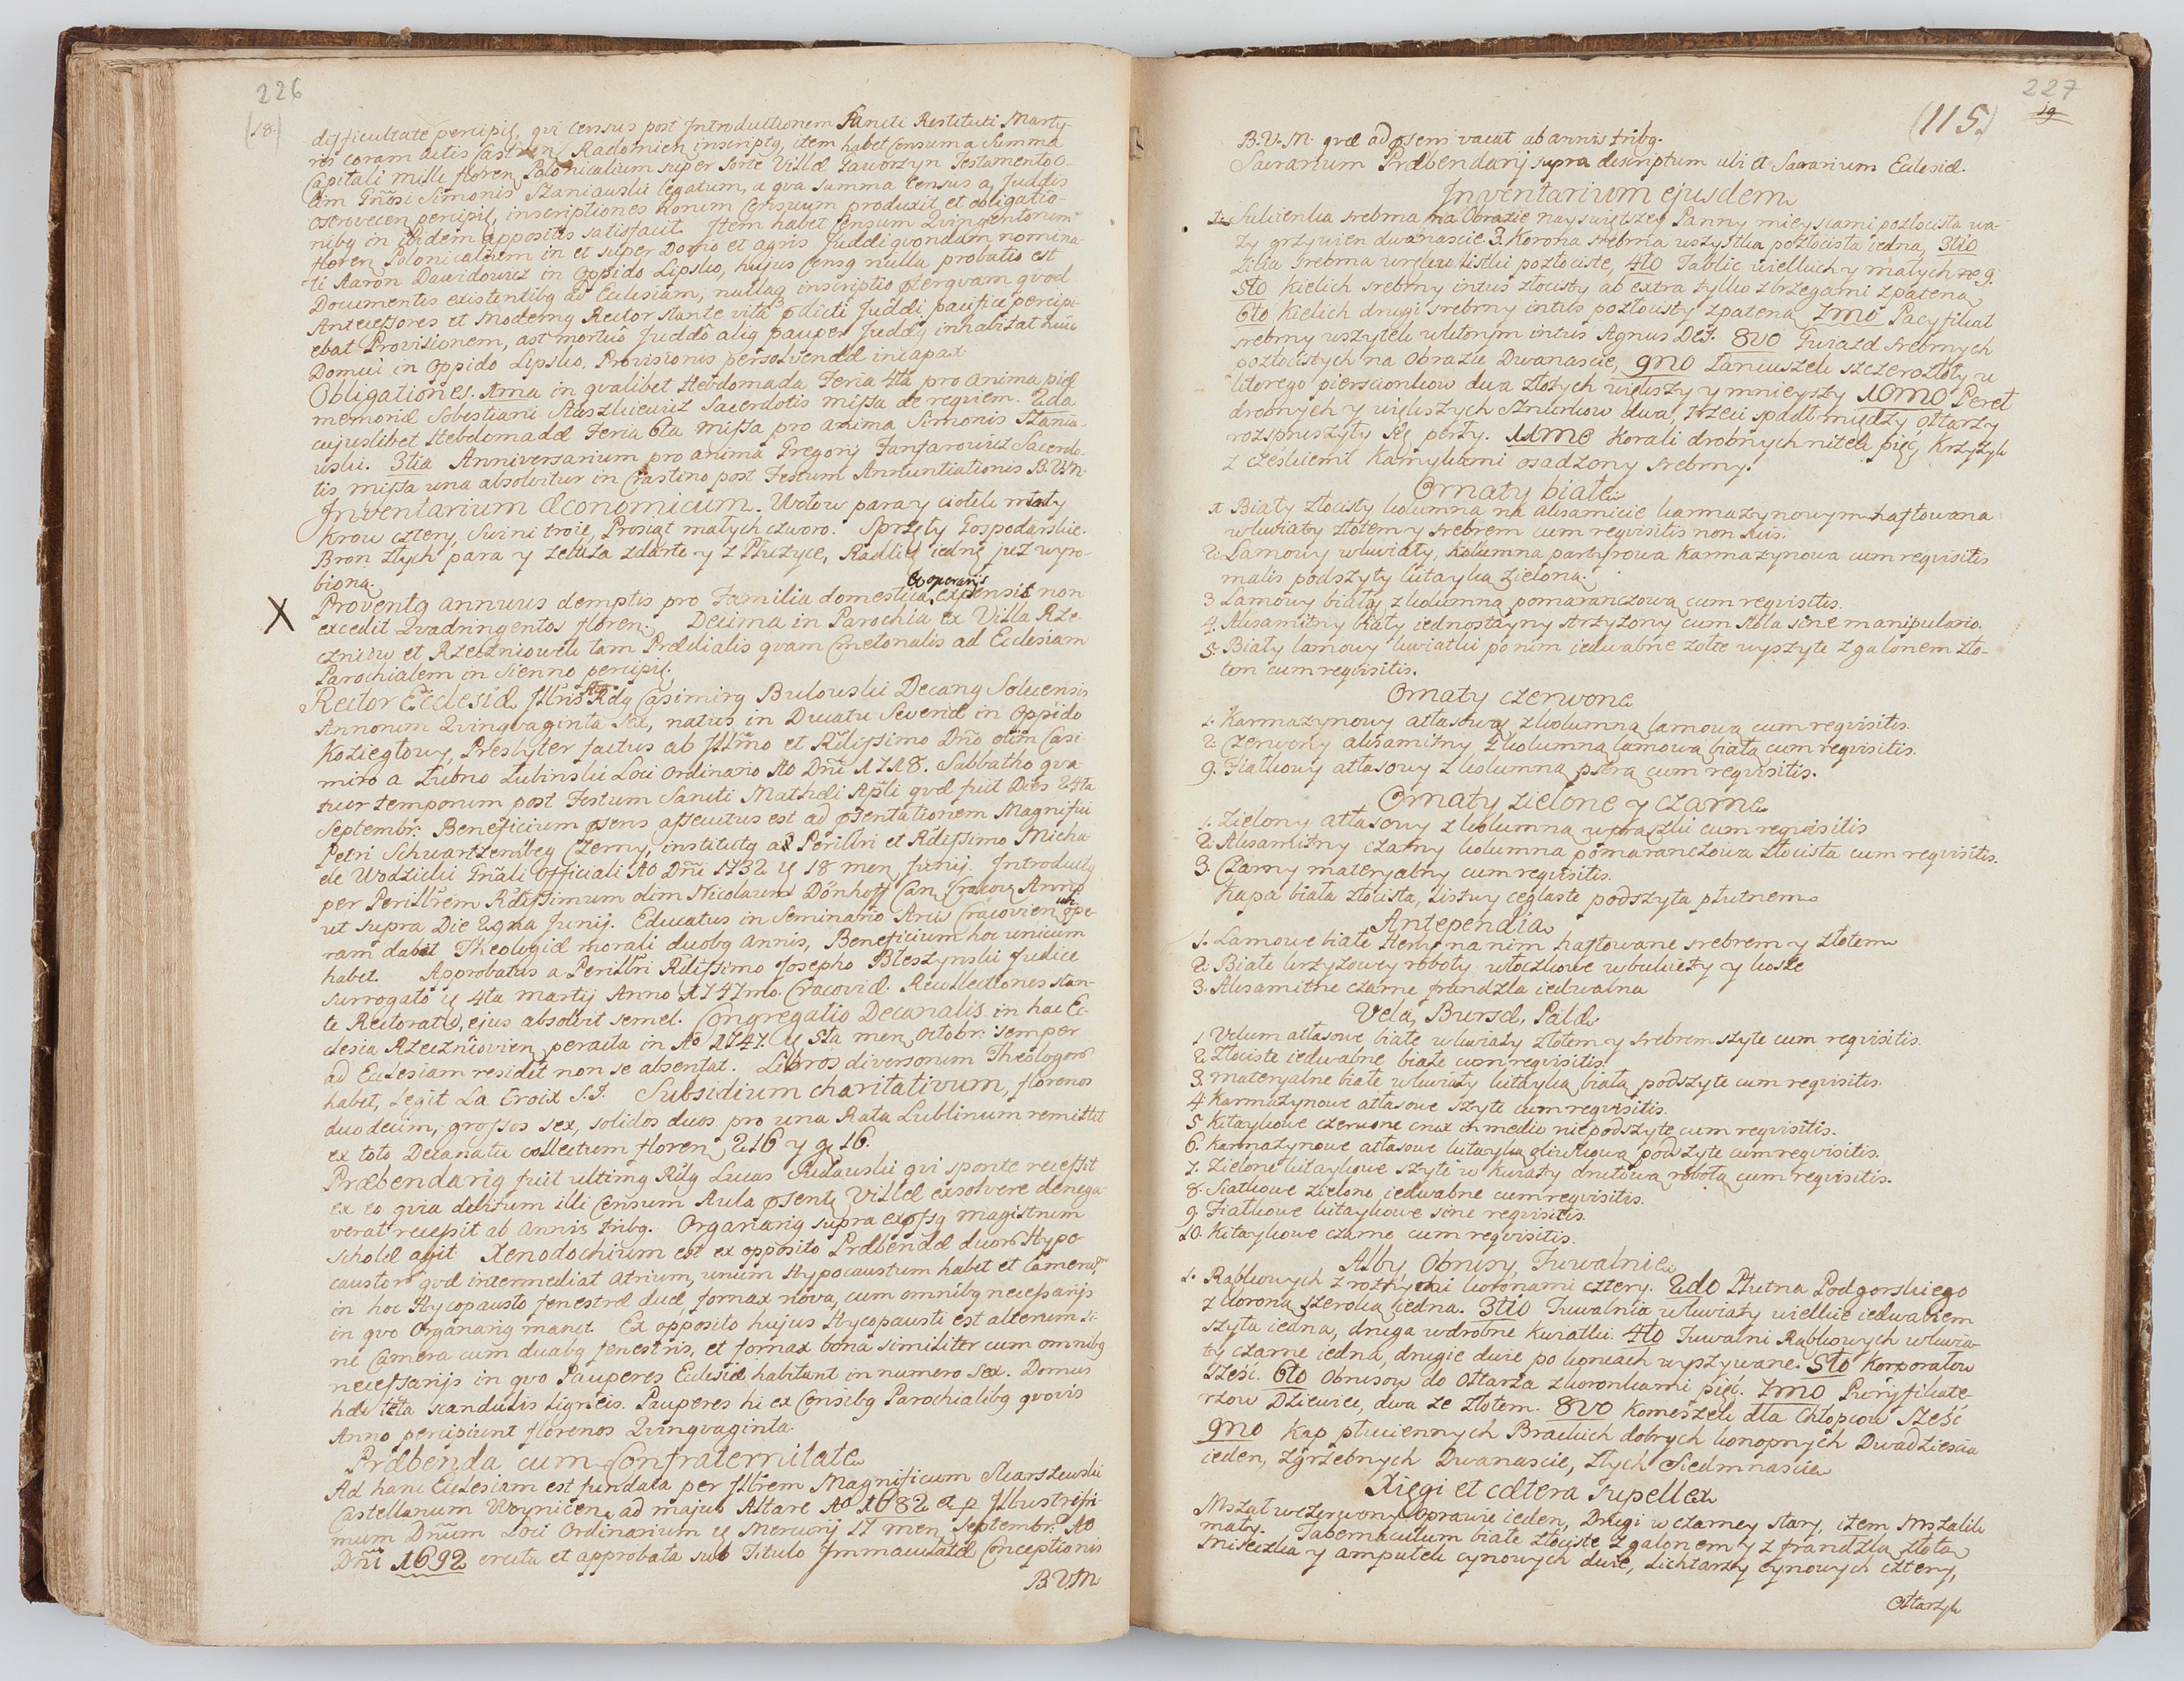 226
(18)
difficultate percipit, qui Census post Introductionem Sancti Restituti Marty-
ris coram actis Castren Radomien inscriptq, item habet Censum a Summa
Capitali mille floren Polonicalium super sorte Villæ Jaworzyn Testamento o-
lim Gñosi Simonis Staniawski legatum, a qva summa Census a Juddis
Ostrovecen percipit, inscriptiones horum Censuum produxit et obligatio-
nibq in ibidem appositis satisfacit. Item habet Censum Qvingentorum
floren Polonicalium in et super Domo et agris Juddi qvondam nomina-
ti Aaron Dawidowicz in Oppido Lipsko, hujus Censq nulla probatio est
Documentis existentibq ad Ecclesiam, nullaq inscriptio pterqvam qvod
Antecessores et Modernq Rector stante vitâ pdicti Juddi pacifice percipi-
ebat Provisionem, ast mortuô Juddô aliq pauper Juddq inhabitat huic
Domui in Oppido Lipsko, Provisionis persolvendæ incapax.
Obligationes. 1ma in qvalibet Hebdomada Feria 4ta pro anima piæ
memoriæ Sebestiani Staszkiewicz Sacerdotis missa de reqviem. 2da
cujuslibet Hebdomadæ Feria 6ta missa pro anima Simonis Stania-
wski. 3tia Anniversarium pro anima Gregorij Fanfarowicz Sacerdo-
tis missa una absolvitur in Crastino post Festum Annuntiationis B.V.M.
Inventarium Œconomicum. Wołow para y ciołek młody
Krow cztery, Swini troie, Prosiąt małych czworo. Sprzęty Gospodarskie.
Bron złych para y żelaza zdarte y z Płużyce, Radlicę iednę już wyro-
bioną.
X Proventq annuus demptis pro Familia domestica, & operarijs expensis non
excedit Qvadringentos floren. Decima in Parochia ex Villa Rze-
czniow et Rzeczniowek tam Prædialis qvam Cmetonalis ad Ecclesiam
Parochialem in Sienno percipit.
Rector Ecclesiæ Illris Adm Rdq Casimirq Bukowski Decanq Solcensis
Annorum Qvinqvaginta Sex, natus in Ducatu Severiæ in Oppido
Koziegłowy, Presbyter factus ab Illmo et Rdissimo Dño olim Casi-
miro a Łubno Łubinski Loci Ordinario Ao Dñi 1718. Sabbatho qva-
tuor temporum post Festum Sancti Mathæi Apli qvæ fuit Dies 24ta
Septembr: Beneficium psens assecutus est ad psentationem Magnifici
Petri Schwartzenbeg Czerny, institutq a Perillri et Rdissimo Micha-
ele Wodzicki Gnâli Officiali Ao Dñi 1732 ij 18 men Junij. Introductq
per Perillrem Rdissimum olim Nicolaum Dônhoff Can Cracov Anno
ut supra Die 29na Junij. Educatus in Seminario Arcis Cracovien ubi ope-
ram dabat Theologiæ morali duobq annis, Beneficium hoc unicum
habet. Approbatus a Perillri Rdissimo Josepho Błeszynski Judice
surrogato ij 4ta martij Anno 1747mo. Cracoviæ. Recollectiones stan-
te Rectoratu, ejus absolvit semel. Congregatio Decanalis in hac Ec-
clesia Rzeczniovien peracta in Ao 1747. ij 5ta men Octobr: semper
ad Ecclesiam residet non se absentat. Libros diversorum Theologorum
habet, legit La Croix S.J. Subsidium charitativum, florenos
duodecim, grossos sex, solidos duos pro una Rata Lublinum remittit
ex toto Decanatu collectum floren 216 y g 16.
Præbendariq fuit ultimq Rdq Lucas Rudawski qvi sponte recessit
ex eo qvia debitum illi Censum Aula psentq Villæ exsolvere denega-
verat recessit ab annis tribq. Organariq supra expssq magistrum
scholæ agit Xenodochium est ex opposito Præbendæ duorum Hypo-
caustorum qvæ intermediat atrium, unum Hypocaustum habet et Cameram,
in hoc Hycopausto fenestræ duæ, fornax nova, cum omnibq necessarijs
in qvo Organariq manet. Ex opposito hujus Hycopausti est alterum si-
ne Camera cum duabq fenestris, et fornax bona similiter cum omnibq
necessarijs in qvo Pauperes Ecclesiæ habitant in numero Sex. Domus
hæc tecta scandulis ligneis. Pauperes hi ex Censibq Parochialibq qvovis
Anno percipiunt florenos Qvinqvaginta.
Præbenda cum Confraternitate
Ad hanc Ecclesiam est fundata per Illrem Magnificum Skarszewski
Castellanum Woynicen ad majus Altare Ao 1682 et p Illustrissi-
mum Dñum Loci Ordinarium ij Mercurij 17 men Septembr: Ao
Dñi 1692 erecta et approbata sub Titulo Immaculatæ Conceptionis
B.V.M
227
19
(115)
B.V.M. qvæ ad psens vacat ab annis tribq.
Sacrarium Præbendarij supra descriptum ubi et Sacrarium Ecclesiæ.
Inventarium ejusdem
1. Sukienka srebrna na Obrazie nayswiętszey Panny mieyscami pozłocista wa-
ży grzywien dwanascie. 2. Korona srebrna wszystka pozłocista iedna, 3tio
Lilia srebrna w ręku listki pozłociste, 4to Tablic wielkich y małych no 9.
5to Kielich srebrny intus złocisty ab extra tylko z brzegami z pateną
6to Kielich drugi srebrny intus pozłocisty z pateną 7mo Pacyfikał
srebrny wszytek w ktorym intus Agnus Dei. 8vo Gwiazd srebrnych
pozłocistych na Obrazie Dwanascie, 9no Łancuszek szczerozłoty u
ktorego pierscionkow dwa złotych większy y mnieyszy 10mo Pereł
drobnych y większych sznurkow dwa, trzeci spadł między ołtarzy
rozspruszyły się perły. 11mo Korali drobnych nitek pięć, krzyżyk
z czeskiemi kamykami osadzony srebrny.
Ornaty białe
1. Biały złocisty kolumna na aksamicie karmazynowym haftowana
w kwiaty złotem y srebrem cum reqvisitis non suis.
2. Lamowy w kwiaty, kolumna partyrowa karmazynowa cum reqvisitis
malis podszyty kitayką zieloną.
3 Lamowy biały z kolumną pomaranczową cum reqvisitis.
4. Aksamitny biały iednostayny strzyżony cum stola sine manipulario.
5. Biały lamowy kwiatki po nim iedwabne zołte wyszyte z galonem zło-
tem cum reqvisitis.
Ornaty czerwone
1. Karmazynowy atłasowy z kolumną lamową cum reqvisitis.
2. Czerwony aksamitny z kolumną lamową białą cum reqvisitis.
9. Fiałkowy atłasowy z kolumną pstrą cum reqvisitis.
Ornaty zielone y czarne
1. Zielony atłasowy z kolumną w ptaszki cum reqvisitis
2. Aksamitny czarny kolumna pomaranczowa złocista cum reqvisitis.
3. Czarny materyalny cum reqvisitis.
Kapa biała złocista, listwy ceglaste podszyta płutnem
Antependia
1. Lamowe białe Herby na nim haftowane srebrem y złotem
2. Białe krzyzowey roboty włoczkowe w bukiety y kosze
3. Aksamitne czarne frandzla iedwabna
Vela, Bursæ, Palæ
1 Velum atłasowe białe w kwiaty złotem y srebrem szyte cum reqvisitis.
2. Złociste iedwabne białe cum reqvisitis.
3. materyalne białe w kwiaty kitayką białą podszyte cum reqvisitis.
4 Karmazynowe atłasowe szyte cum reqvisitis.
5 Kitaykowe czerwone crux in medio niepodszyte cum reqvisitis.
6. Karmazynowe atłasowe kitayką gliwkową podszyte cum reqvisitis.
7. Zielone kitaykowe szyte w kwiaty drutową robotą cum reqvisitis.
8. Siatkowe zielone iedwabne cum reqvisitis.
9. Fiatkowe kitaykowe sine reqvisitis.
10. Kitaykowe czarne cum reqvisitis.
Alby, Obrusy, Tuwalnie
1. Rąbkowych z rożnymi koronami cztery. 2do Płutna Podgorskiego
z koroną szeroką iedna. 3tio Tuwalnia w kwiaty wielkie iedwabiem
szyta iedna, druga w drobne kwiatki 4to Tuwalni Rąbkowych w kwia-
ty czarne iedna, drugie dwie po koncach wyszywane. 5to Korporałow
sześć. 6to Obrusow do Ołtarza z koronkami pięć. 7mo Puryfikate-
rzow Dziewięć, dwa ze złotem. 8vo Komeszek dla Chłopcow sześć
9no Kap płuciennych Brackich dobrych konopnych Dwadziescia
ieden, zgrzebnych Dwanascie, złych Siedmnascie
Xięgi et cætera supellex
Mszał w czerwony oprawie ieden, Drugi w czarney stary, item Mszalik
mały. Tabernaculum białe złociste z galonem y z frandzlą złotą
Miseczka y ampułek cynowych dwie, Lichtarzy cynowych cztery,
Ołtarzyk